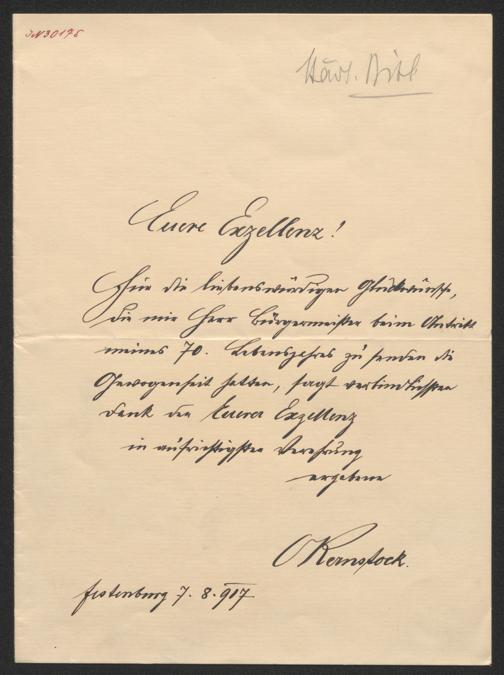 IN 30175
Städt. Bibl
Euere Exzellenz!
Für die liebenswürdigen Glückwünsche,
die mir Herr Bürgermeister beim Antritt
meines 70. Lebensjahres zu senden die
Gewogenheit hatten, sagt verbindlichsten
Dank der Euerer Exzellenz
in aufrichtigster Verehrung
ergebene
OKernstock.
Festenburg 7. 8. 917